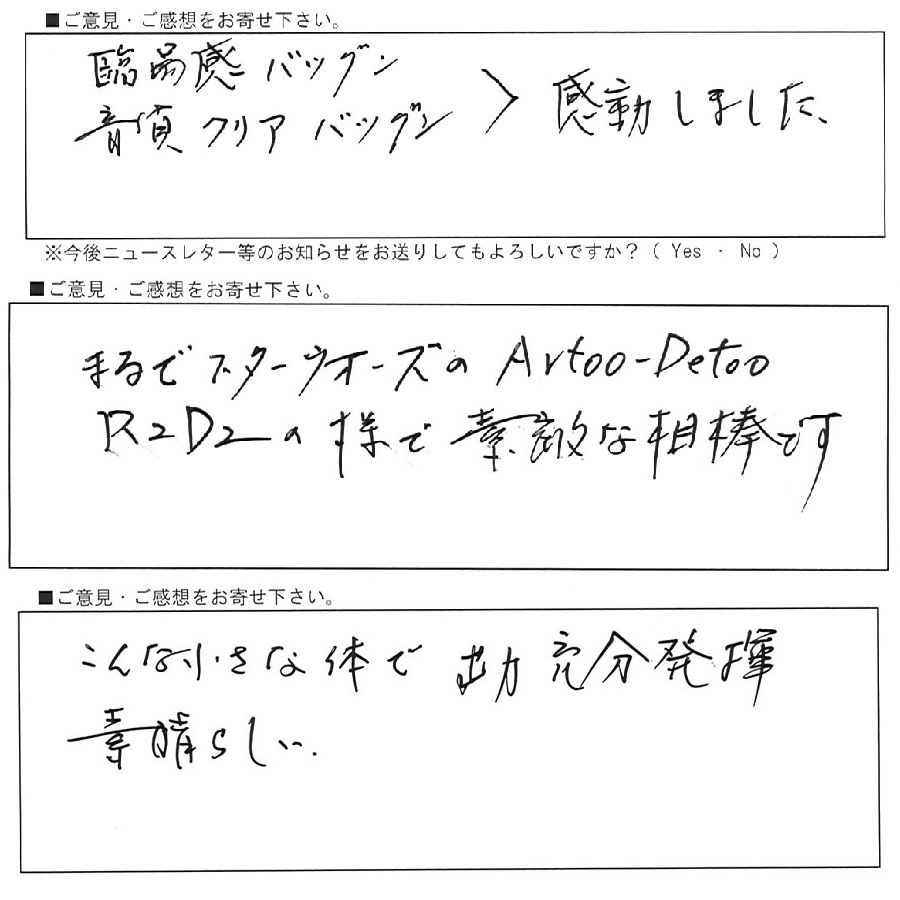 ■ご意見・ご感想をお寄せ下さい。
臨場感バツグン
音質クリアバツグン > 感動しました、
※今後ニュースレター等のお知らせをお送りしてもよろしいですか?( Yes ・ No )
■ご意見・ご感想をお寄せ下さい。
まるでスターウオーズの Artoo-Detoo
R2D2の様で素敵な相棒です
■ご意見・ご感想をお寄せ下さい。
こんな小さな体で 出力 充分発揮
素晴らしい.